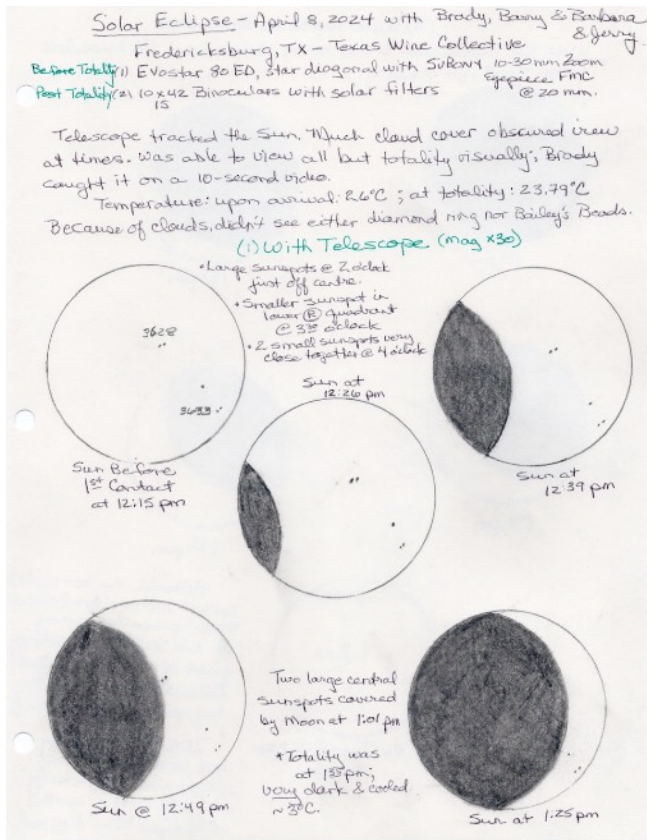 Solar Eclipse - April 8, 2024 with Brady, Barry & Barbara
& Jerry
Fredericksburg, TX - Texas Wine Collective
Before Totality (1) Evostar 80 ED, star diagonal with SVBONY 10-30mm Zoom
Eyepiece FMC
@ 20 mm.
Post Totality (2) 10x42 Binoculars with solar filters
15
Telescope tracked the Sun. Much cloud cover obscured view
at times. Was able to view all but totality visually; Brady
caught it on a 10-second video.
Temperature: upon arrival: 26°C ; at totality: 23.79°C
Because of clouds, didn't see either diamond ring nor Bailey's Beads.
(1) With Telescope (mag x30)
• Large sunspots @ 2 o'clock
just off centre.
• Smaller sunspot in
lower (R) quadrant
@ 3:30 o'clock
• 2 small sunspots very
close together @ 4 o'clock
3628
3633
Sun Before
1st Contact
at 12:15 pm
Sun at
12:26 pm
Sun at
12:39 pm
Two large central
sunspots covered
by Moon at 1:01 pm
* Totality was
at 1:35 pm;
very dark & cooled
~3°C.
Sun @ 12:49 pm
Sun at 1:25 pm